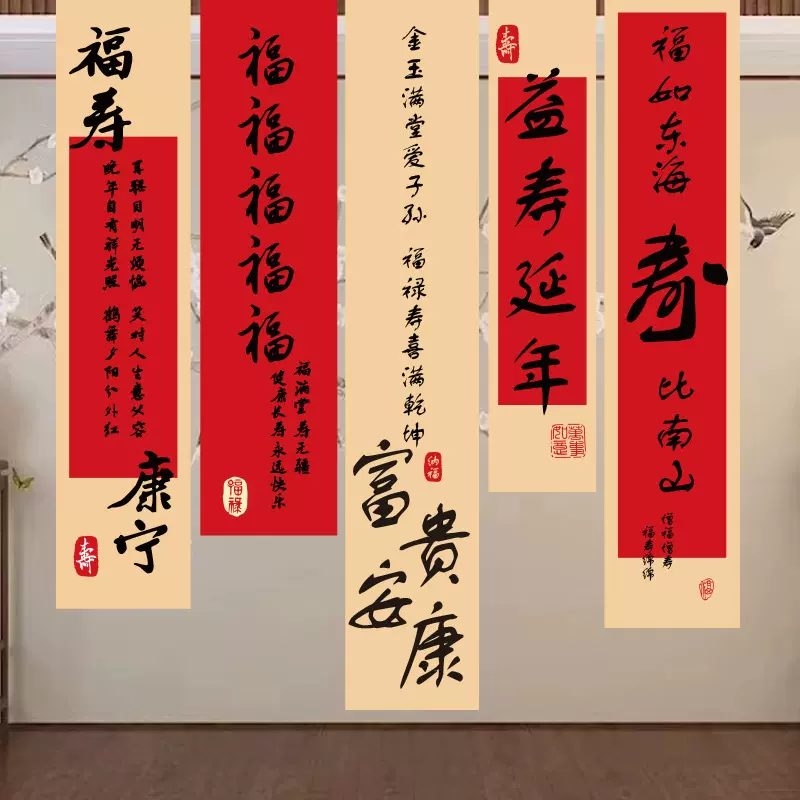 福寿
耳聪目明无烦恼 笑对人生意从容
晚年自有祥光照 鹤舞夕阳分外红
康宁
壽
福福福福福
福满堂寿无疆
健康长寿永远快乐
福禄
金玉满堂爱子孙 福禄寿喜满乾坤
纳福
富貴安康
壽
益寿延年
萬事如意
福如东海
寿
比南山
增福增寿
福寿绵绵
福